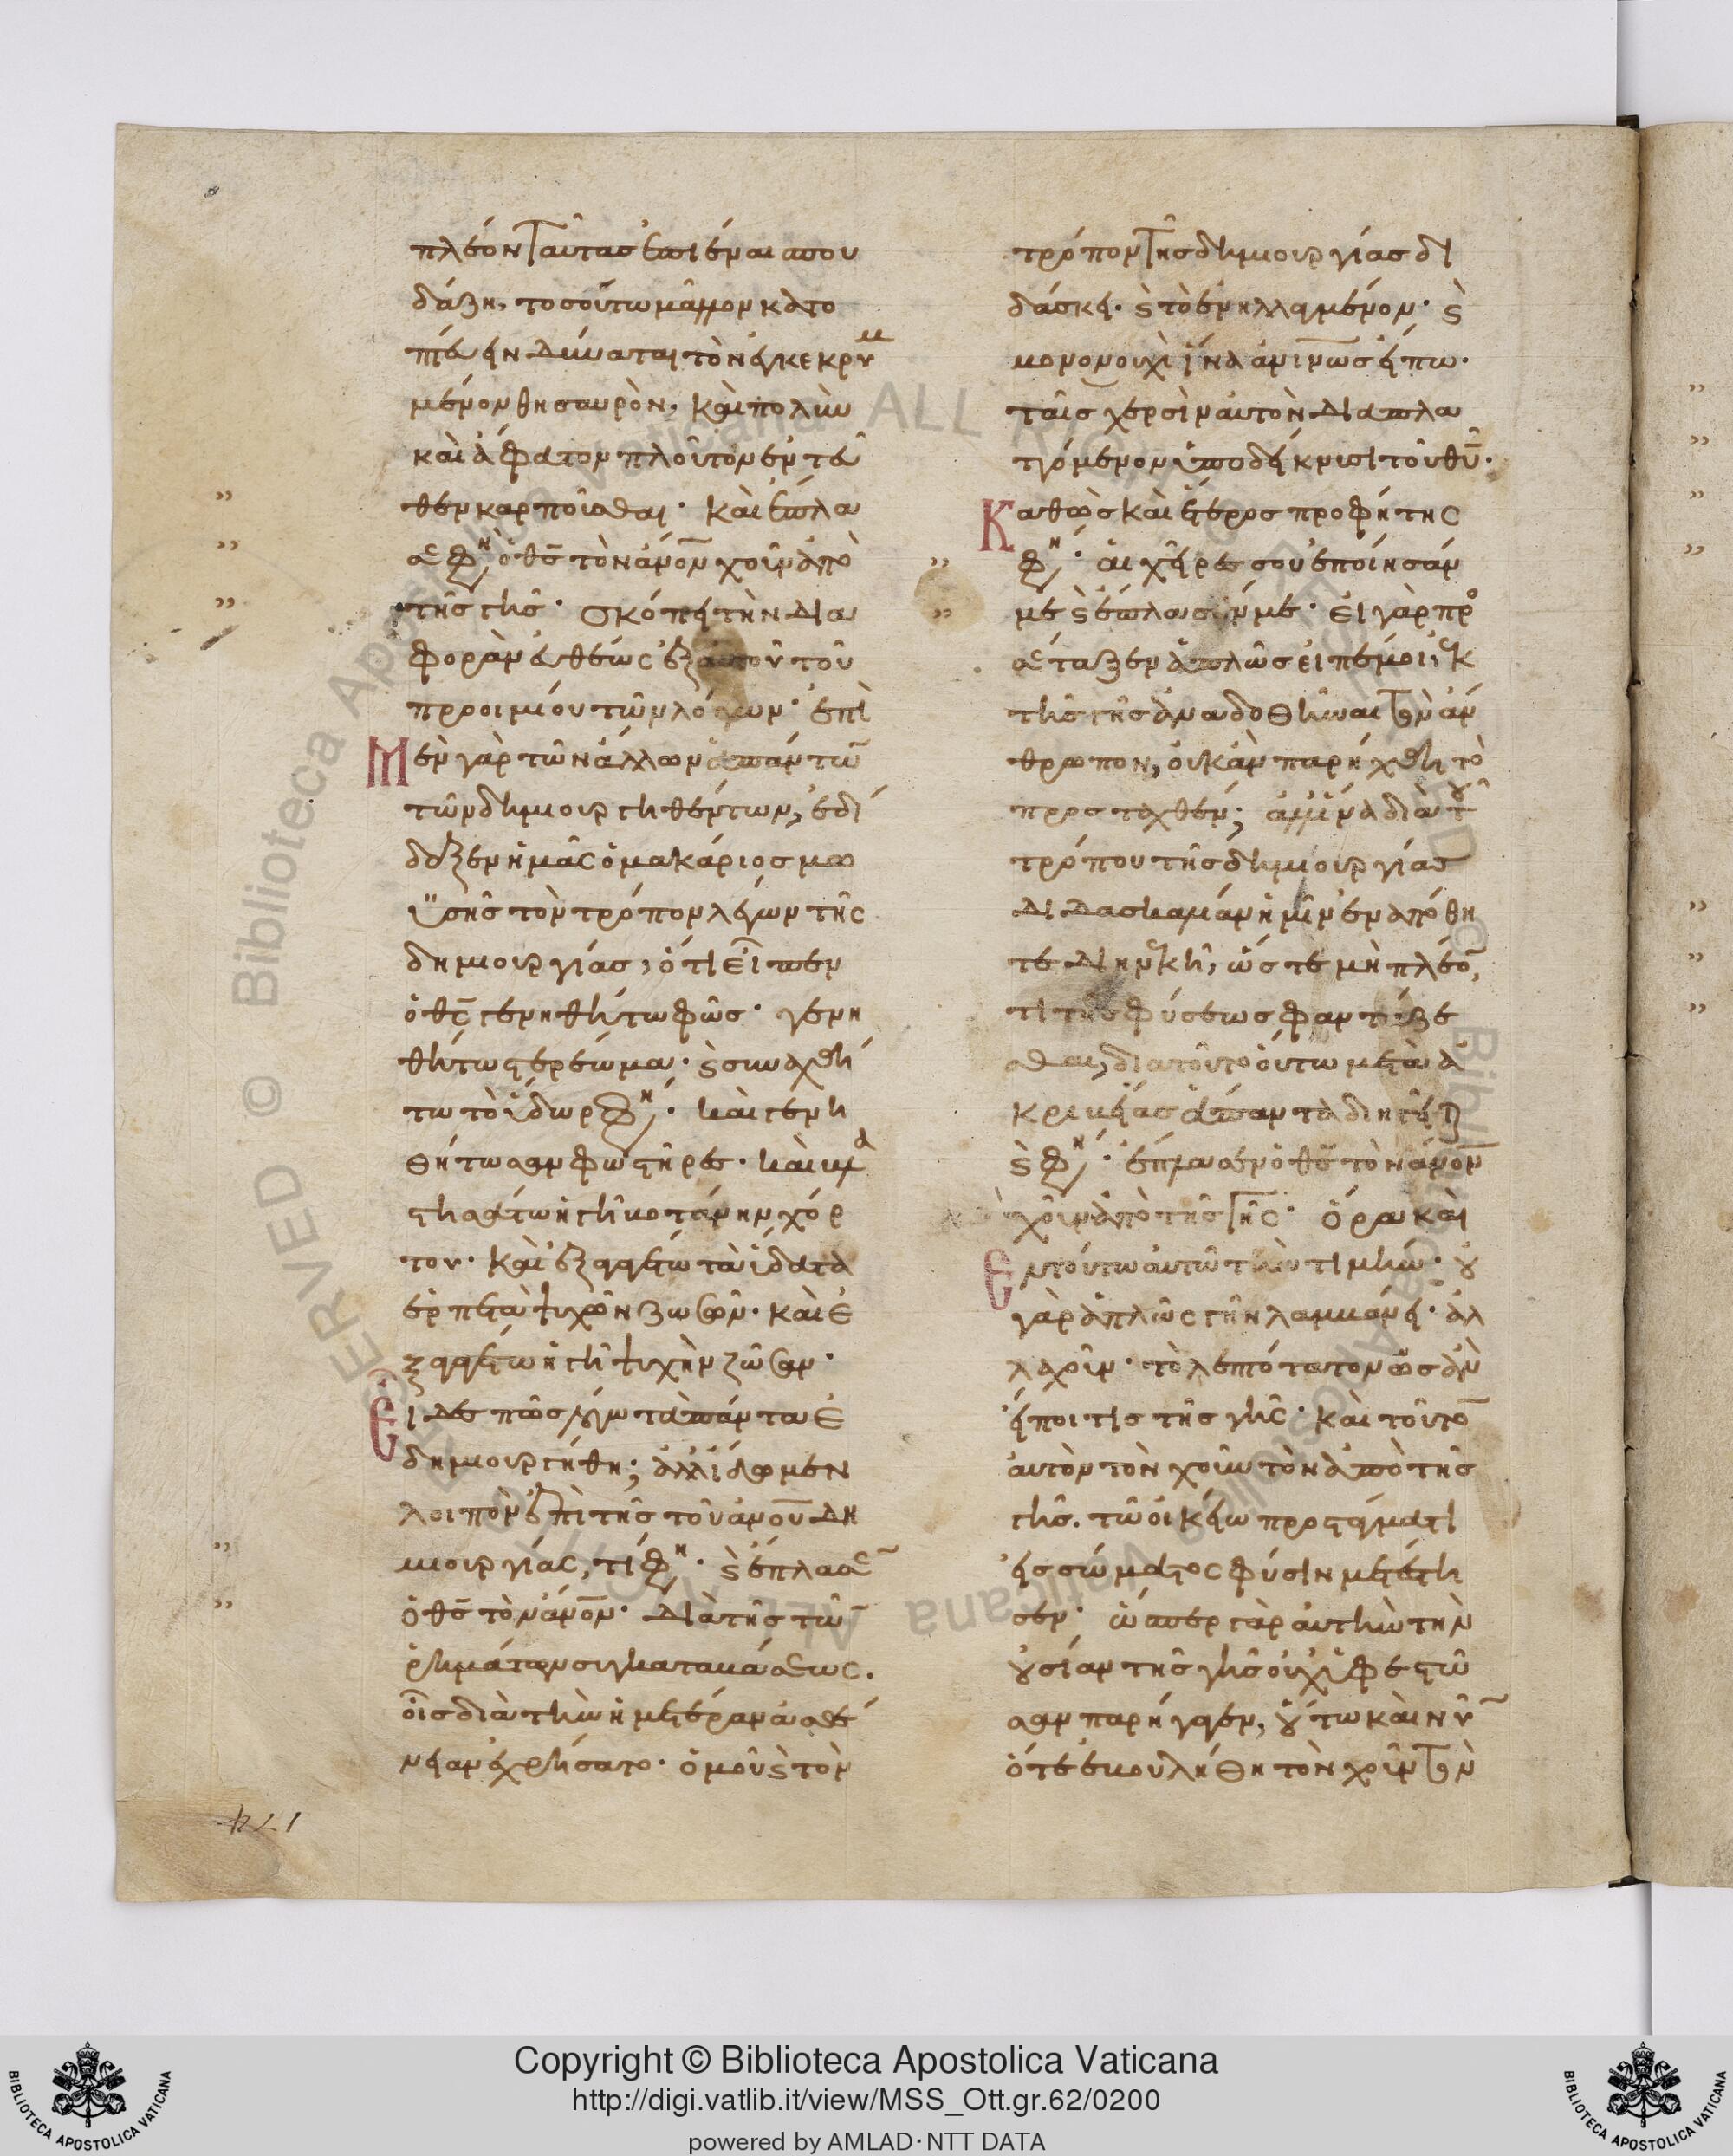 πλέον ταύτας ἐπιέναι σπου
δάζη, τοσούτω μᾶλλον κατο
πτεύειν δύναται τὸν ἐγκεκρυμ
μένον θησαυρὸν, καὶ πολὺν
καὶ ἄφατον πλοῦτον ἐντεῦ
θεν καρποῦσθαι· καὶ ἔπλα
σέ φη ὁ θς τὸν ἄνον χοῦν ἀπὸ
τῆς γῆς· σκόπει τὴν δια
φορὰν εὐθέως ἐξ αὐτοῦ τοῦ
προοιμίου τῶν λόγων· ἐπὶ
μὲν γὰρ τῶν ἄλλων ἁπάντων
τῶν δημιουργηθέντων, ἐδί
δαξεν ἡμᾶς ὁ μακάριος μω
ϋσῆς τὸν τρόπον λέγων τῆς
δημιουργίας, ὅτι εἶπεν
ὁ θς γενηθήτω φῶς· γενη
θήτω στερέωμα· καὶ συναχθή
τω τὸ ὕδωρ φη· καὶ γενη
θήτωσαν φωστῆρες· καὶ βλα
στησάτω ἡ γῆ βοτάνην χόρ
του· καὶ ἐξαγαγέτω τὰ ὕδατα
ἑρπετὰ ψυχῶν ζωσῶν· καὶ ἐ
ξαγαγέτω ἡ γῆ ψυχὴν ζῶσαν·
Εἶδες πῶς λόγω τὰ πάντα ἐ
δημιουργήθη; ἀλλ' ἴδωμεν
λοιπὸν ἐπὶ τῆς τοῦ ἀνου δη
μιουργίας, τί φη· καὶ ἔπλασε
ὁ θς τὸν ἄνον· διὰ τῆς τῶν
ῥημάτων συγκαταβάσεως.
οἷς διὰ τὴν ἡμετέραν ἀσθέ
νειαν ἐχρήσατο· ὁμοῦ καὶ τὸν
174
τρόπον τῆς δημιουργίας δι
δάσκει· καὶ τὸ ἐνηλλαγμένον· καὶ
μονονουχὶ ἵνα ἀνινως εἴπω·
ταῖς χερσὶν αὐτὸν διαπλα
ττόμενον ὑποδείκνυσι τοῦ θυ·
Καθὼς καὶ ἕτερος προφήτης
φη· αἱ χεῖρες σου ἐποίησάν
με καὶ ἔπλασάν με· εἰ γὰρ προ
σέταξεν ἁπλῶς εἰπέ μοι, ἐκ
τῆς γῆς ἀναδοθῆναι τὸν ἄν
θρωπον, οὐκ ἂν παρήχθη τὸ
προσταχθέν; ἀλλ' ἵνα διὰ τοῦ
τρόπου τῆς δημιουργίας
διδασκαλίαν ἡμῖν ἐναπόθη
ται διηνεκῆ, ὥστε μὴ πλέον
τι τῆς φύσεως φαντάζε
σθαι, διατοῦτο οὕτω μετὰ ἀ
κριβείας ἅπαντα διηγεῖται
καὶ φη· ἔπλασεν ὁ θς τὸν ἄνον
χοῦν ἀπὸ τῆς γῆς· ὅρα καὶ
ἐν τούτω αὐτῶ τὴν τιμήν· οὐ
γὰρ ἁπλῶς γῆν λαμβάνει· ἀλ
λὰ χοῦν· τὸ λεπτότατον ὡς ἂν
εἴποι τις τῆς γῆς· καὶ τοῦτον
αὐτὸν τὸν χοῦν τὸν ἀπὸ τῆς
γῆς. τῶ οἰκείω προστάγματι
εἰς σώματος φύσιν μετέστη
σεν· ὥσπερ γὰρ αὐτὴν τὴν
οὐσίαν τῆς γῆς οὐχ ὑφεστῶ
σαν παρήγαγεν, οὕτω καὶ νῦν
ὅτε ἐβουλήθη τὸν χοῦν τὸν
Copyright © Biblioteca Apostolica Vaticana
http://digi.vatlib.it/view/MSS_Ott.gr.62/0200
powered by AMLAD·NTT DATA